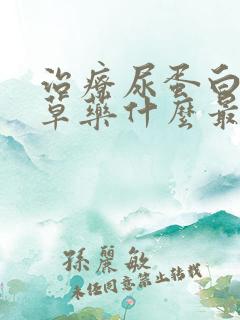 治療尿蛋白
草藥什麼最
孫麗敏
未经同意禁止转载